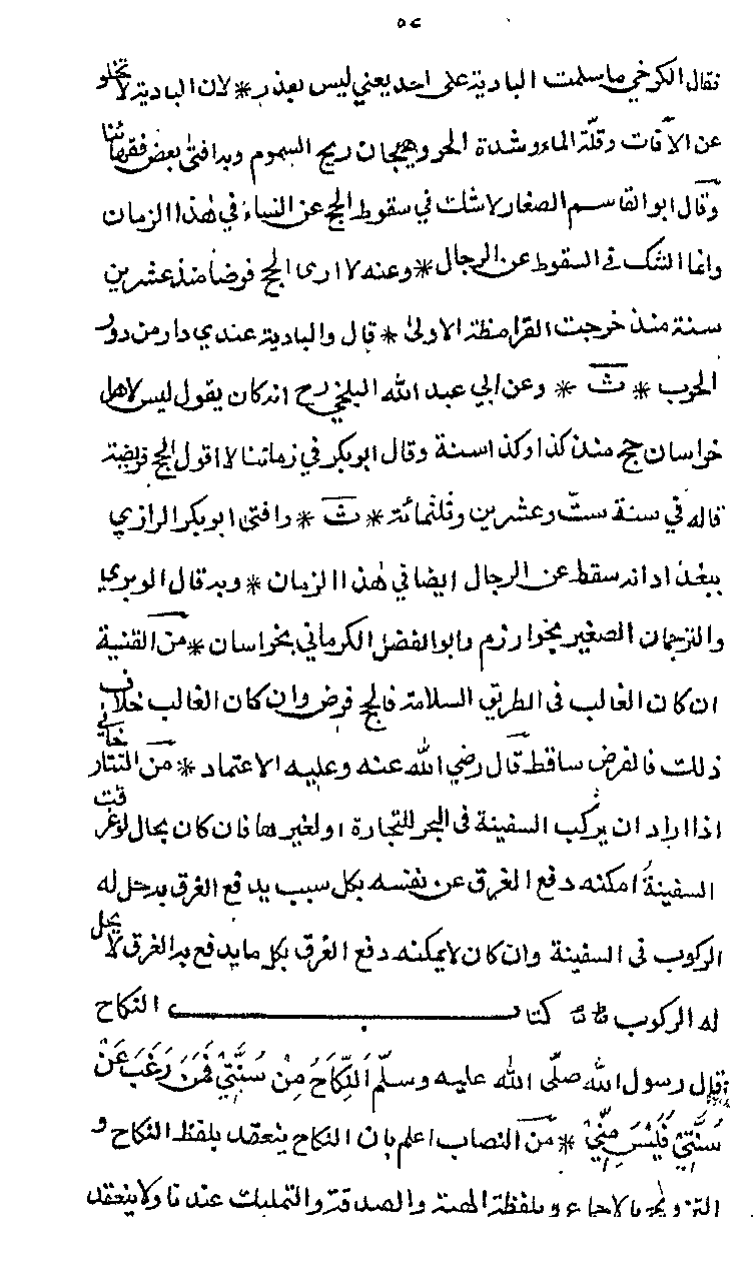 ٥٤
فقال الكرخي ما سلمت البادية على احد يعني ليس بعذر * لان البادية لا تخلو
عن الآفات وقلّة الماء وشدة الحر وهيجان ريح السموم وبه افتى بعض فقهائنا
وقال ابو القاسم الصفار لا شك في سقوط الحج عن النساء في هذا الزمان
وانما الشك في السقوط عن الرجال * وعنه لا ارى الحج فرضا منذ عشرين
سنة منذ خرجت القرامطة الاولى * قال والبادية عندي دار من دور
الحرب * ث * وعن ابي عبد الله البلخي رح انه كان يقول ليس لاهل
خراسان حج منذ كذا وكذا سنة وقال ابو بكر في زماننا لا اقول الحج فريضة
قاله في سنة ستّ وعشرين وثلثمائة * ث * وافتى ابو بكر الرازي
ببغداد انه سقط عن الرجال ايضا في هذا الزمان * وبه قال الوبري
والترجمان الصغير بخوارزم وابو الفضل الكرماني بخراسان * من القنية
ان كان الغالب في الطريق السلامة فالحج فرض وان كان الغالب خلاف
ذلك فالفرض ساقط قال رضي الله عنه وعليه الاعتماد * من التتارخاني
اذا اراد ان يركب السفينة في البحر للتجارة او لغيرها فان كان بحال لو غرقت
السفينةُ امكنه دفع الغرق عن نفسه بكل سبب يدفع الغرق به حل له
الركوب في السفينة وان كان لا يمكنه دفع الغرق بكل ما يدفع به الغرق لا يحل
له الركوب كتاب النكاح
قال رسول الله صلّى الله عليه وسلّم اَلنِّكَاحُ مِنْ سُنَّتِيْ فَمَنْ رَغِبَ عَنْ
سُنَّتِيْ فَلَيْسَ مِنِّيْ * من النصاب اعلم بان النكاح ينعقد بلفظ النكاح و
التزويج بالاجماع وبلفظة الهبة والصدقة والتمليك عندنا ولا ينعقد